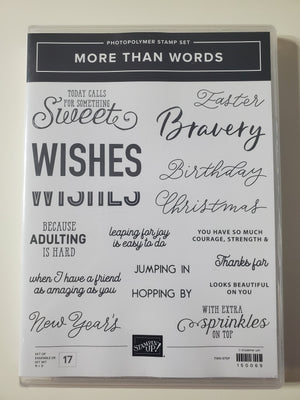 PHOTOPOLYMER STAMP SET
MORE THAN WORDS
TODAY CALLS
FOR SOMETHING
Sweet
Easter
Bravery
WISHES
WISHES
Birthday
Christmas
BECAUSE
ADULTING
IS HARD
leaping for joy
is easy to do
YOU HAVE SO MUCH
COURAGE, STRENGTH &
Thanks for
JUMPING IN
when I have a friend
as amazing as you
HOPPING BY
LOOKS BEAUTIFUL
ON YOU
New Year's
STAMPIN' UP!
WITH EXTRA
sprinkles
ON TOP
SET OF
17
150069